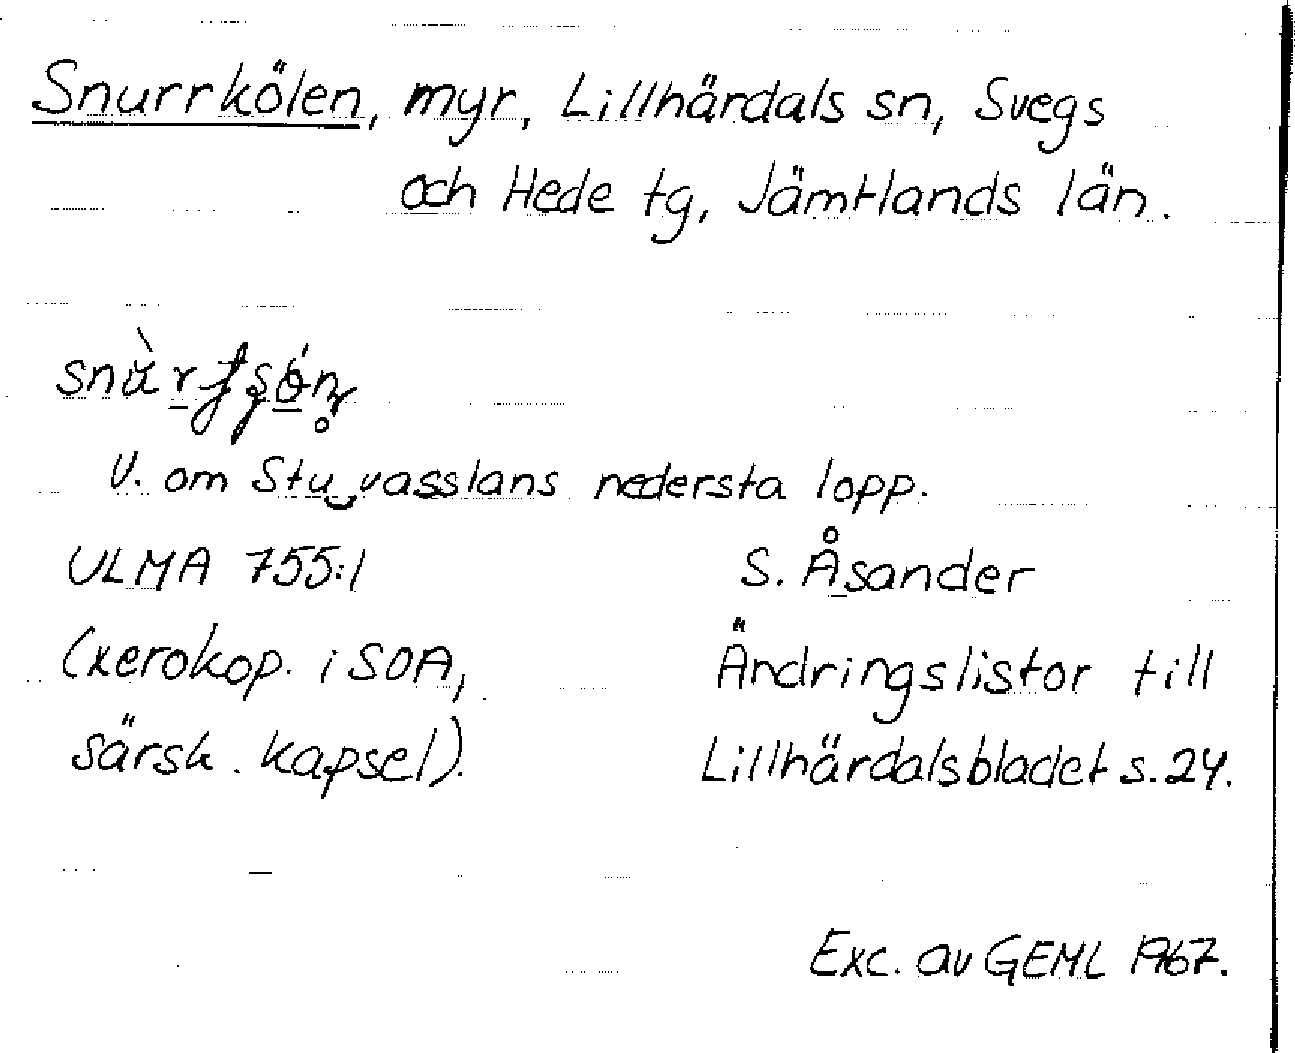 Snurrkölen, myr, Lillhärdals sn, Svegs
och Hede tg, Jämtlands län.
V. om Stu‿vasslans nedersta lopp.
ULMA 755:1 S. Åsander
(xerokop. i SOA, Ändringslistor till
särsk. kapsel). Lillhärdalsbladet s. 24.
Exc. av GEML 1967.